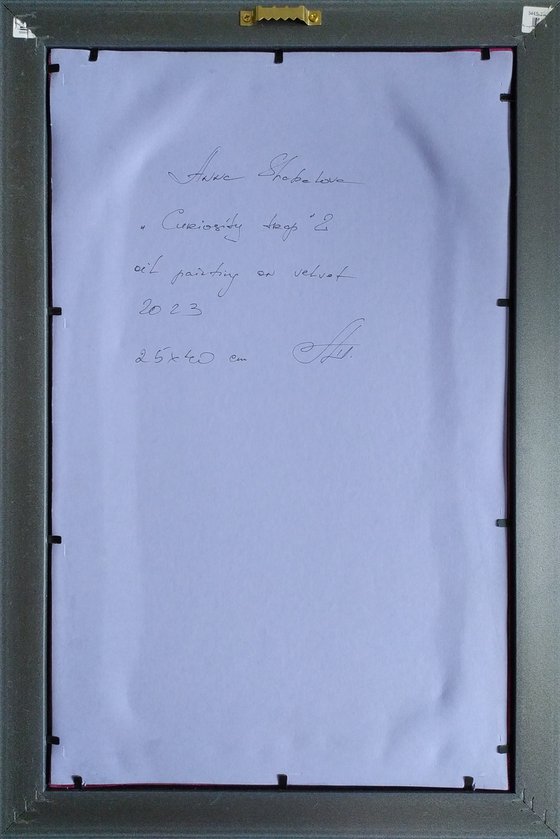 Anna Shabalova
„Curiosity trap" 2
oil painting on velvet
2023
25x40 cm АШ.